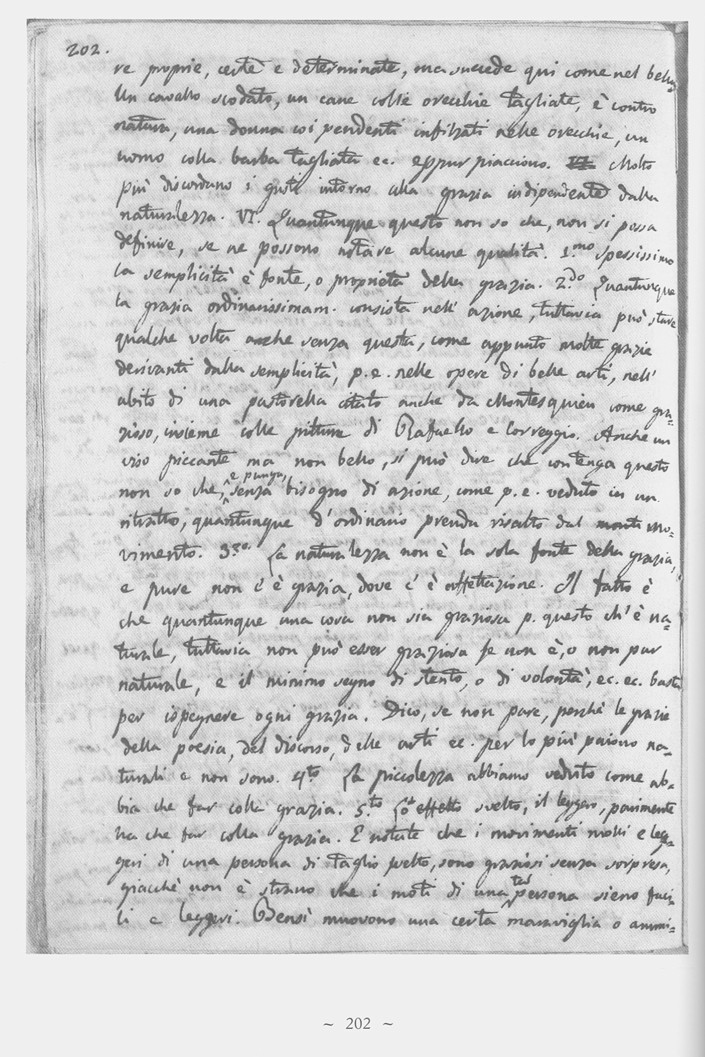 202.
re proprie, certe e determinate, ma succede qui come nel bello
Un cavallo scodato, un cane colle orecchie tagliate, è contro
natura, una donna coi pendenti infilzati nelle orecchie, un
uomo colla barba tagliata ec. eppur piacciono. Molto
più discordano i gusti intorno alla grazia indipendente dalla
naturalezza. VI. Quantunque questo non so che, non si possa
definire, se ne possono notare alcune qualità. 1.mo Spessissimo
la semplicità è fonte, o proprietà della grazia. 2.do Quantunque
la grazia ordinarissimam. consista nell' azione, tuttavia può stare
qualche volta anche senza questa, come appunto molte grazie
derivanti dalla semplicità, p. e. nelle opere di belle arti, nell'
abito di una pastorella citato anche da Montesquieu come gra-
zioso, insieme colle pitture di Rafaello e Correggio. Anche un
viso piccante ma non bello, si può dire che contenga questo
non so che, e punga, senza bisogno di azione, come p. e. veduto in un
ritratto, quantunque d'ordinario prenda risalto dal mo-
vimento. 3.zo La naturalezza non è la sola fonte della grazia,
e pure non c'è grazia, dove c'è affettazione. Il fatto è
che quantunque una cosa non sia graziosa p. questo ch'è na-
turale, tuttavia non può esser graziosa se non è, o non par
naturale, e il minimo segno di stento, o di volontà, ec. ec. basta
per ispegnere ogni grazia. Dico, se non pare, perchè le grazie
della poesia, del discorso, delle arti ec. per lo più paiono na-
turali e non sono. 4.to La piccolezza abbiamo veduto come ab-
bia che far colla grazia. 5.to Lo effetto svelto, il leggero, parimente
ha che far colla grazia. E notate che i movimenti molli e leg-
geri di una persona di taglio svelto, sono graziosi senza sorpresa,
giacchè non è strano che i moti di una tal persona sieno faci-
li e leggeri. Bensì muovono una certa maraviglia o ammi-
~ 202 ~